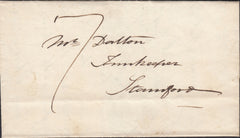 7
Mr Dalton
Innkeeper
Stamford